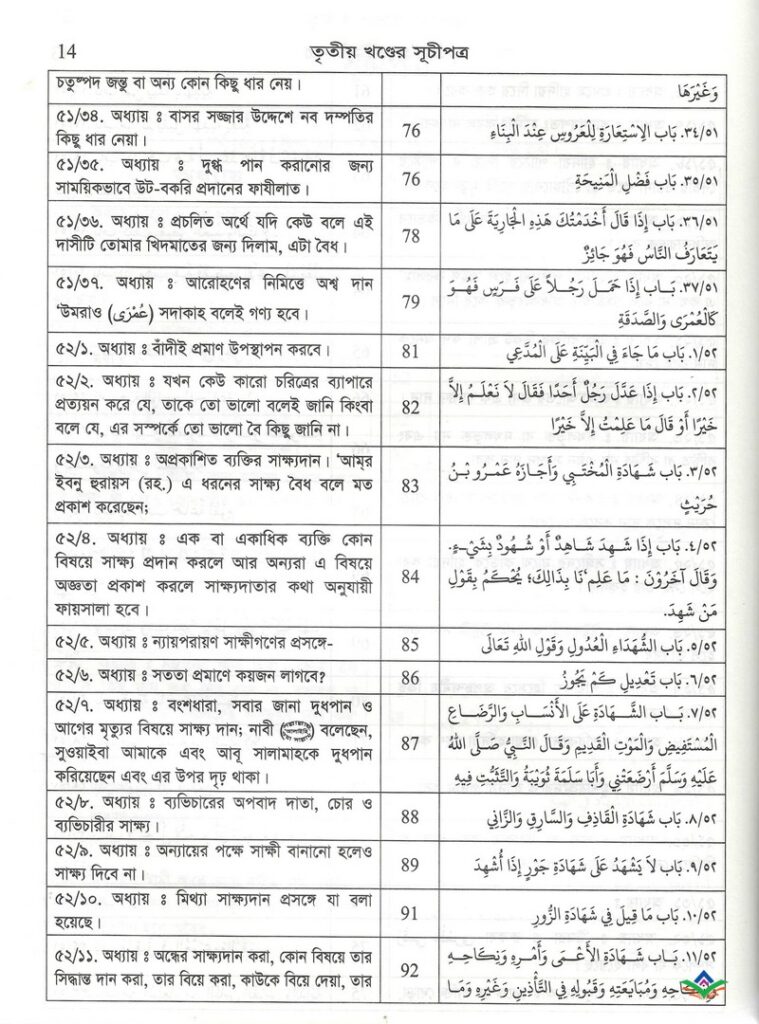 14
তৃতীয় খণ্ডের সূচীপত্র
চতুষ্পদ জন্তু বা অন্য কোন কিছু ধার নেয়।
وَغَيْرَهَا
৫১/৩৪. অধ্যায় ঃ বাসর সজ্জার উদ্দেশে নব দম্পতির
কিছু ধার নেয়া।
76
٣٤/٥١. بَاب الِاسْتِعَارَةِ لِلْعَرُوسِ عِنْدَ الْبِنَاءِ
৫১/৩৫. অধ্যায় ঃ দুগ্ধ পান করানোর জন্য
সাময়িকভাবে উট-বকরি প্রদানের ফাযীলাত।
76
٣٥/٥١. بَاب فَضْلِ الْمَنِيحَةِ
৫১/৩৬. অধ্যায় ঃ প্রচলিত অর্থে যদি কেউ বলে এই
দাসীটি তোমার খিদমাতের জন্য দিলাম, এটা বৈধ।
78
٣٦/٥١. بَاب إِذَا قَالَ أَخْدَمْتُكَ هَذِهِ الْجَارِيَةَ عَلَى مَا
يَتَعَارَفُ النَّاسُ فَهُوَ جَائِزٌ
৫১/৩৭. অধ্যায় ঃ আরোহণের নিমিত্তে অশ্ব দান
‘উমরাও (عُمْرَى) সদাকাহ বলেই গণ্য হবে।
79
٣٧/٥١. بَاب إِذَا حَمَلَ رَجُلاً عَلَى فَرَسٍ فَهُوَ
كَالْعُمْرَى وَالصَّدَقَةِ
৫২/১. অধ্যায় ঃ বাঁদীই প্রমাণ উপস্থাপন করবে।
81
١/٥٢. بَاب مَا جَاءَ فِي الْبَيِّنَةِ عَلَى الْمُدَّعِي
৫২/২. অধ্যায় ঃ যখন কেউ কারো চরিত্রের ব্যাপারে
প্রত্যয়ন করে যে, তাকে তো ভালো বলেই জানি কিংবা
বলে যে, এর সম্পর্কে তো ভালো বৈ কিছু জানি না।
82
٢/٥٢. بَاب إِذَا عَدَّلَ رَجُلٌ أَحَدًا فَقَالَ لاَ نَعْلَمُ إِلاَّ
خَيْرًا أَوْ قَالَ مَا عَلِمْتُ إِلاَّ خَيْرًا
৫২/৩. অধ্যায় ঃ অপ্রকাশিত ব্যক্তির সাক্ষ্যদান। ‘আম্‌র
ইবনু হুরায়স (রহ.) এ ধরনের সাক্ষ্য বৈধ বলে মত
প্রকাশ করেছেন;
83
٣/٥٢. بَاب شَهَادَةِ الْمُخْتَبِي وَأَجَازَهُ عَمْرُو بْنُ
حُرَيْثٍ
৫২/৪. অধ্যায় ঃ এক বা একাধিক ব্যক্তি কোন
বিষয়ে সাক্ষ্য প্রদান করলে আর অন্যরা এ বিষয়ে
অজ্ঞতা প্রকাশ করলে সাক্ষ্যদাতার কথা অনুযায়ী
ফায়সালা হবে।
84
٤/٥٢. بَاب إِذَا شَهِدَ شَاهِدٌ أَوْ شُهُودٌ بِشَيْءٍ.
وَقَالَ آخَرُونَ : مَا عَلِمْنَا بِذَالِكَ؛ يُحْكَمُ بِقَوْلِ
مَنْ شَهِدَ.
৫২/৫. অধ্যায় ঃ ন্যায়পরায়ণ সাক্ষীগণের প্রসঙ্গে-
85
٥/٥٢. بَاب الشُّهَدَاءِ الْعُدُولِ وَقَوْلِ اللهِ تَعَالَى
৫২/৬. অধ্যায় ঃ সততা প্রমাণে কয়জন লাগবে?
86
٦/٥٢. بَاب تَعْدِيلِ كَمْ يَجُوزُ
৫২/৭. অধ্যায় ঃ বংশধারা, সবার জানা দুধপান ও
আগের মৃত্যুর বিষয়ে সাক্ষ্য দান; নাবী বলেছেন,
সুওয়াইবা আমাকে এবং আবূ সালামাহকে দুধপান
করিয়েছেন এবং এর উপর দৃঢ় থাকা।
87
٧/٥٢. بَاب الشَّهَادَةِ عَلَى الْأَنْسَابِ وَالرَّضَاعِ
الْمُسْتَفِيضِ وَالْمَوْتِ الْقَدِيمِ وَقَالَ النَّبِيُّ صَلَّى اللهُ
عَلَيْهِ وَسَلَّمَ أَرْضَعَتْنِي وَأَبَا سَلَمَةَ ثُوَيْبَةُ وَالتَّثَبُّتِ فِيهِ
৫২/৮. অধ্যায় ঃ ব্যভিচারের অপবাদ দাতা, চোর ও
ব্যভিচারীর সাক্ষ্য।
88
٨/٥٢. بَاب شَهَادَةِ الْقَاذِفِ وَالسَّارِقِ وَالزَّانِي
৫২/৯. অধ্যায় ঃ অন্যায়ের পক্ষে সাক্ষী বানানো হলেও
সাক্ষ্য দিবে না।
89
٩/٥٢. بَاب لاَ يَشْهَدُ عَلَى شَهَادَةِ جَوْرٍ إِذَا أُشْهِدَ
৫২/১০. অধ্যায় ঃ মিথ্যা সাক্ষ্যদান প্রসঙ্গে যা বলা
হয়েছে।
91
١٠/٥٢. بَاب مَا قِيلَ فِي شَهَادَةِ الزُّورِ
৫২/১১. অধ্যায় ঃ অন্ধের সাক্ষ্যদান করা, কোন বিষয়ে তার
সিদ্ধান্ত দান করা, তার বিয়ে করা, কাউকে বিয়ে দেয়া, তার
92
١١/٥٢. بَاب شَهَادَةِ الْأَعْمَى وَأَمْرِهِ وَنِكَاحِهِ
وَإِنْكَاحِهِ وَمُبَايَعَتِهِ وَقَبُولِهِ فِي التَّأْذِينِ وَغَيْرِهِ وَمَا